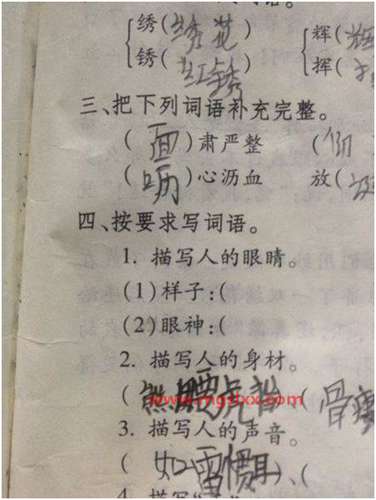 绣(绣花)
锈(红锈)
辉(辉
挥(
三、把下列词语补充完整。
(面)肃严整
(呖)心沥血 放(
四、按要求写词语。
1. 描写人的眼睛。
(1)样子:(
(2)眼神:(
2. 描写人的身材。
(熊腰虎背 (骨瘦
www.mgsbxx.com
3. 描写人的声音。
(如雷惯耳)、(
4. 描写